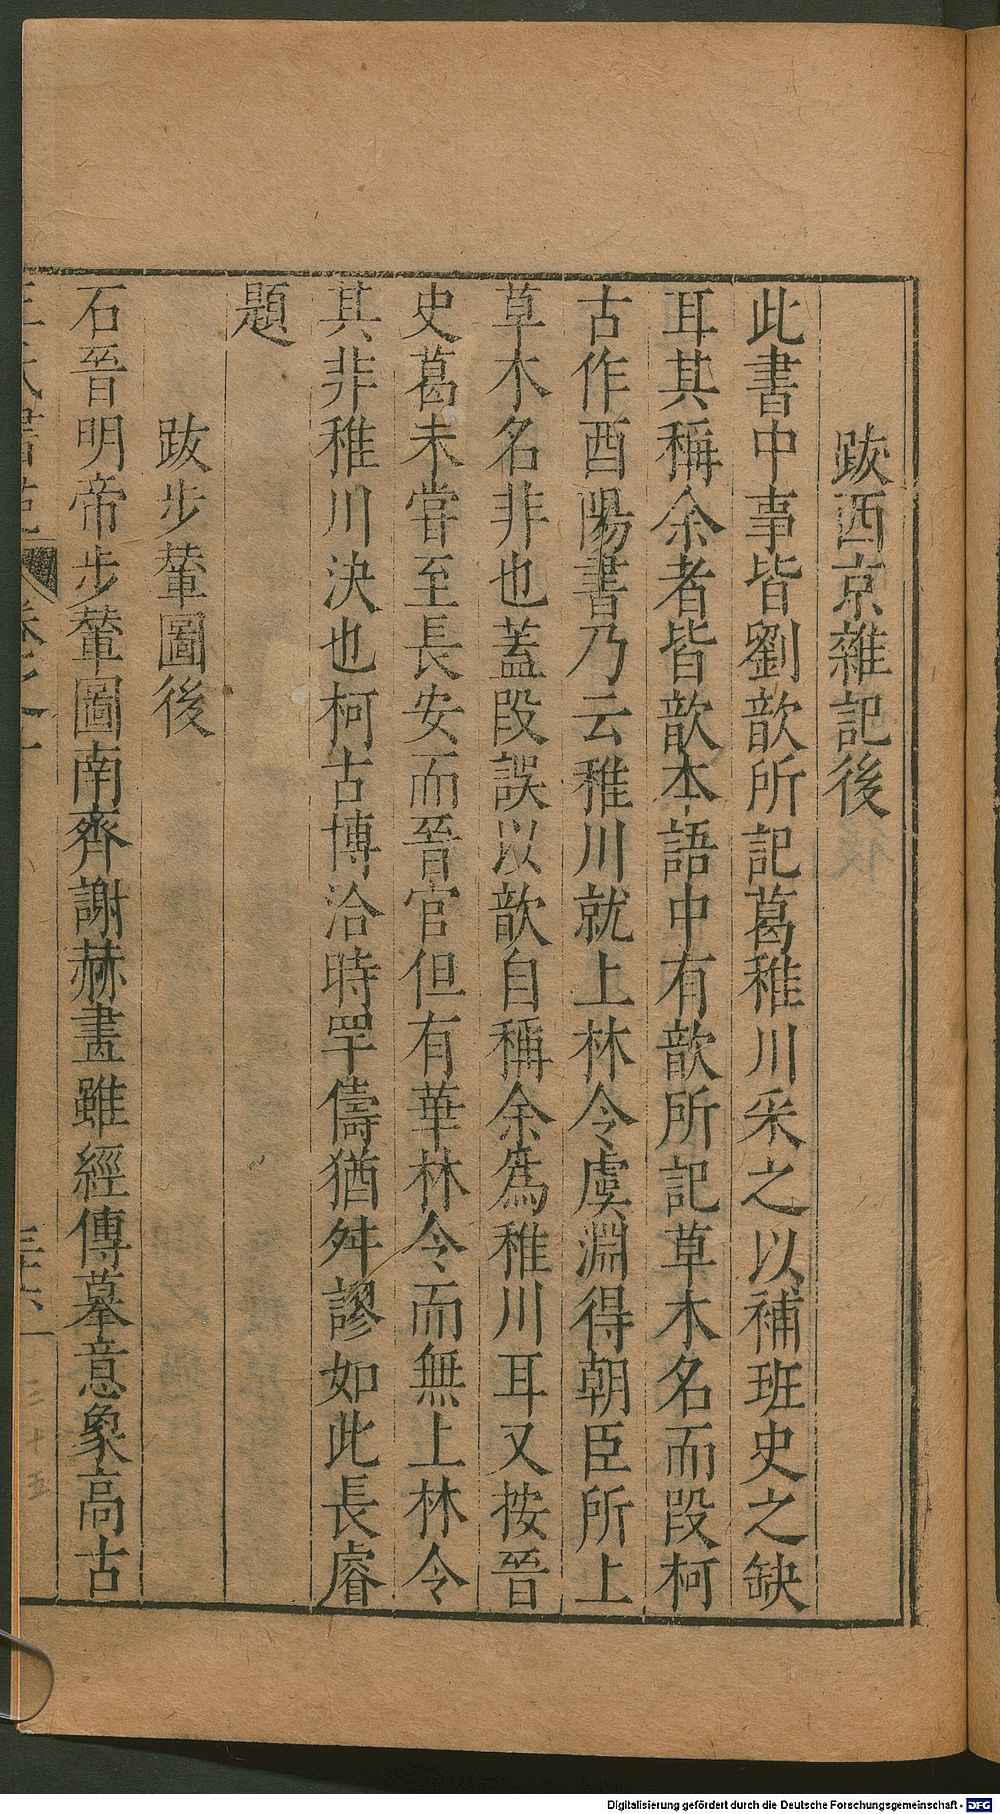 跋西京雜記後
此書中事皆劉歆所記葛稚川采之以補班史之缺
耳其稱余者皆歆本語中有歆所記草木名而段柯
古作酉陽書乃云稚川就上林令虞淵得朝臣所上
草木名非也蓋段誤以歆自稱余爲稚川耳又按晉
史葛未嘗至長安而晉官但有華林令而無上林令
其非稚川決也柯古博洽時罕儔猶舛謬如此長睿
題
跋步輦圖後
石晉明帝步輦圖南齊謝赫畫雖經傳摹意象高古
王氏書苑 卷之一
三十六
三十五
Digitalisierung gefördert durch die Deutsche Forschungsgemeinschaft - DFG